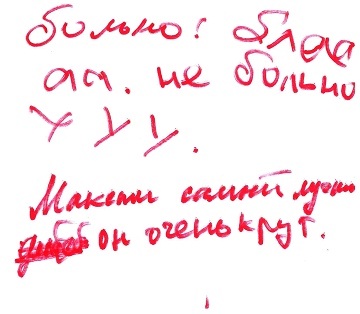 больно! блаа
аа. не больно
ууу.
Максим самый лучш
он очень крут.